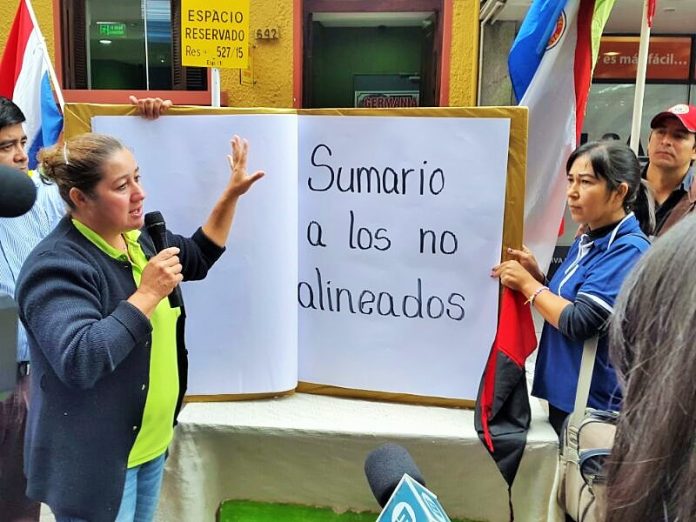 ESPACIO
RESERVADO
Res 527/15
692
GERMANIA
er es más fácil...
Sumario
a los no
alineados